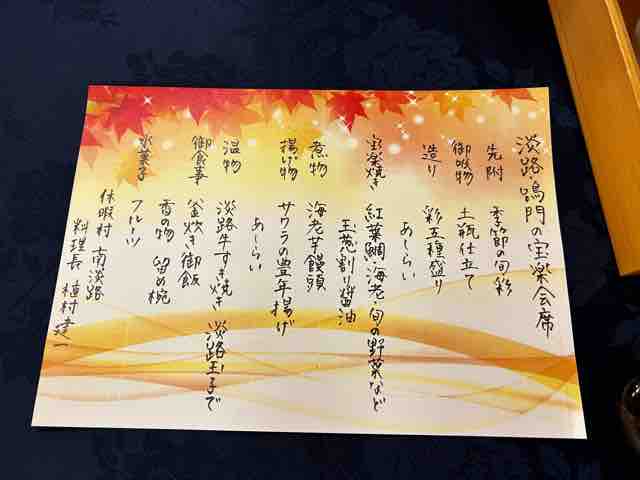 淡路・鳴門の宝楽会席
先附 季節の旬彩
御吸物 土瓶仕立て
造り 彩五種盛り
あしらい
宝楽焼き 紅葉鯛・海老・旬の野菜など
玉葱割り醤油
煮物 海老芋饅頭
揚げ物 サワラの豊年揚げ
あしらい
温物 淡路牛すき焼き 淡路玉子で
御食事 釜炊き御飯
香の物 留め椀
水菓子 フルーツ
休暇村 南淡路
料理長 植村 建一